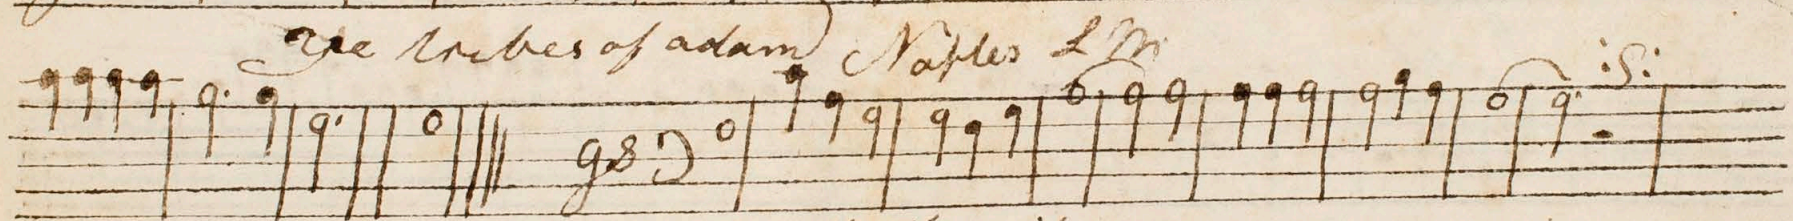 The tribes of adam Naples L M
:S: